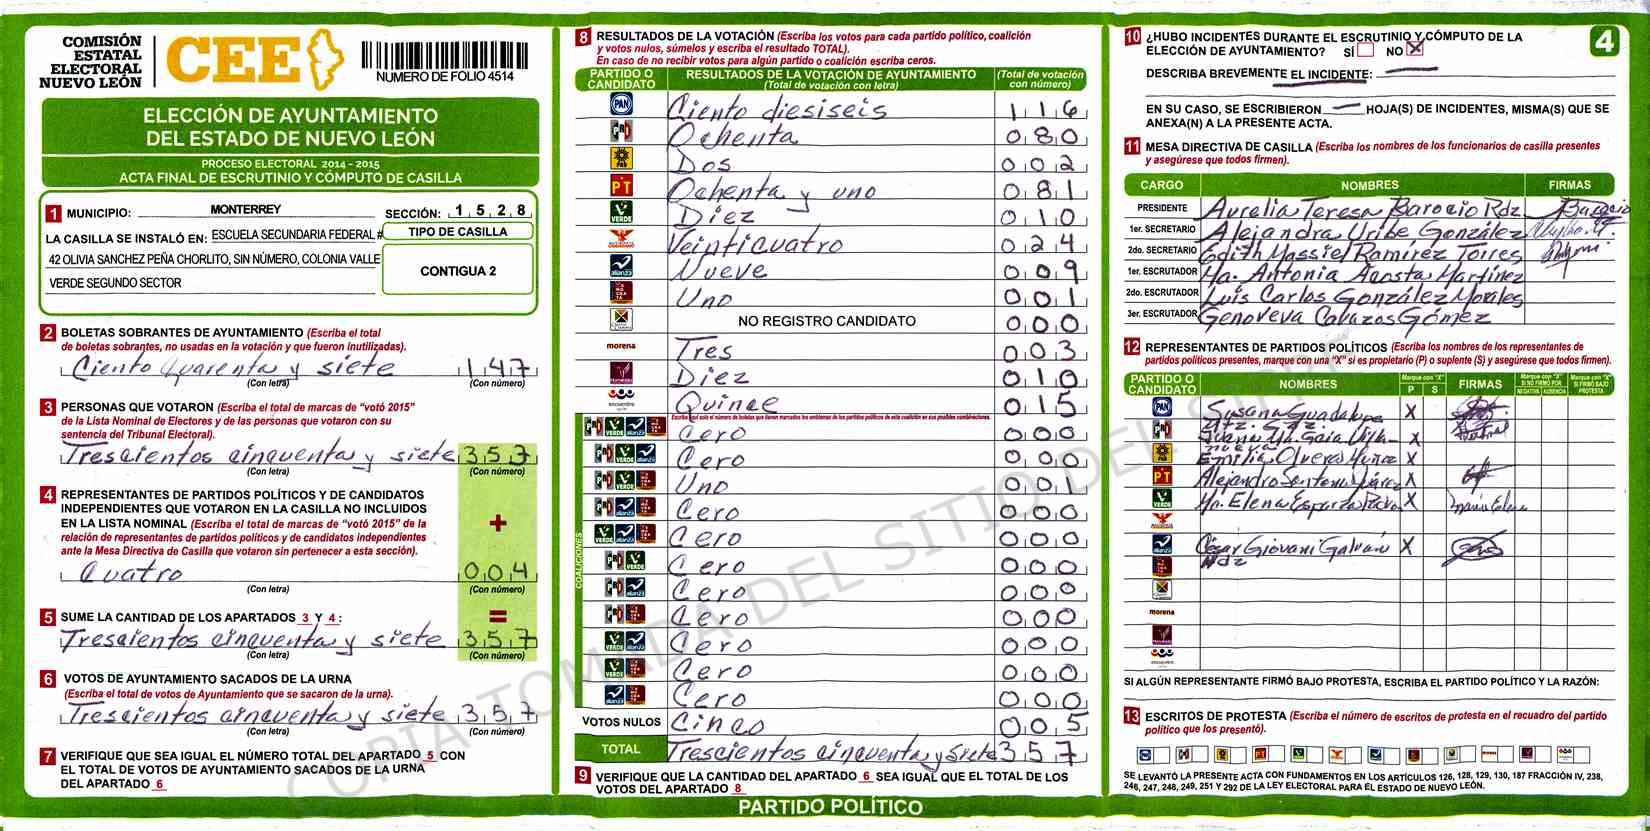 COMISIÓN
ESTATAL
ELECTORAL
NUEVO LEÓN
CEE
NUMERO DE FOLIO 4514
ELECCIÓN DE AYUNTAMIENTO
DEL ESTADO DE NUEVO LEÓN
PROCESO ELECTORAL 2014 - 2015
ACTA FINAL DE ESCRUTINIO Y CÓMPUTO DE CASILLA
1 MUNICIPIO: MONTERREY SECCIÓN: 1 5 2 8
LA CASILLA SE INSTALÓ EN: ESCUELA SECUNDARIA FEDERAL #
42 OLIVIA SANCHEZ PEÑA CHORLITO, SIN NÚMERO, COLONIA VALLE
VERDE SEGUNDO SECTOR
TIPO DE CASILLA
CONTIGUA 2
2 BOLETAS SOBRANTES DE AYUNTAMIENTO (Escriba el total
de boletas sobrantes, no usadas en la votación y que fueron inutilizadas).
Ciento quarenta y siete 147
(Con letra) (Con número)
3 PERSONAS QUE VOTARON (Escriba el total de marcas de “votó 2015”
de la Lista Nominal de Electores y de las personas que votaron con su
sentencia del Tribunal Electoral).
Trescientos cinquenta y siete 357
(Con letra) (Con número)
4 REPRESENTANTES DE PARTIDOS POLÍTICOS Y DE CANDIDATOS
INDEPENDIENTES QUE VOTARON EN LA CASILLA NO INCLUIDOS
EN LA LISTA NOMINAL (Escriba el total de marcas de “votó 2015” de la
relación de representantes de partidos políticos y de candidatos independientes
ante la Mesa Directiva de Casilla que votaron sin pertenecer a esta sección).
+
Cuatro 004
(Con letra) (Con número)
=
5 SUME LA CANTIDAD DE LOS APARTADOS 3 Y 4:
Trescientos cinquenta y siete 357
(Con letra) (Con número)
6 VOTOS DE AYUNTAMIENTO SACADOS DE LA URNA
(Escriba el total de votos de Ayuntamiento que se sacaron de la urna).
Trescientos cinquenta y siete 357
(Con letra) (Con número)
7 VERIFIQUE QUE SEA IGUAL EL NÚMERO TOTAL DEL APARTADO 5 CON
EL TOTAL DE VOTOS DE AYUNTAMIENTO SACADOS DE LA URNA
DEL APARTADO 6
8 RESULTADOS DE LA VOTACIÓN (Escriba los votos para cada partido político, coalición
y votos nulos, súmelos y escriba el resultado TOTAL).
En caso de no recibir votos para algún partido o coalición escriba ceros.
PARTIDO O CANDIDATO
RESULTADOS DE LA VOTACIÓN DE AYUNTAMIENTO
(Total de votación con letra)
(Total de votación con número)
PAN Ciento diesiseis 116
PRI Ochenta 080
PRD Dos 002
PT Ochenta y uno 081
VERDE Diez 010
Veinticuatro 024
alianza Nueve 009
Uno 001
NO REGISTRO CANDIDATO 000
morena Tres 003
Diez 010
encuentro Quince 015
COALICIONES
Cero 000
Cero 000
Uno 001
Cero 000
Cero 000
Cero 000
Cero 000
Cero 000
Cero 000
Cero 000
Cero 000
VOTOS NULOS Cinco 005
TOTAL Trescientos cinquenta y siete 357
9 VERIFIQUE QUE LA CANTIDAD DEL APARTADO 6 SEA IGUAL QUE EL TOTAL DE LOS
VOTOS DEL APARTADO 8
PARTIDO POLÍTICO
10 ¿HUBO INCIDENTES DURANTE EL ESCRUTINIO Y CÓMPUTO DE LA
ELECCIÓN DE AYUNTAMIENTO? SÍ NO X
4
DESCRIBA BREVEMENTE EL INCIDENTE:
EN SU CASO, SE ESCRIBIERON HOJA(S) DE INCIDENTES, MISMA(S) QUE SE
ANEXA(N) A LA PRESENTE ACTA.
11 MESA DIRECTIVA DE CASILLA (Escriba los nombres de los funcionarios de casilla presentes
y asegúrese que todos firmen).
CARGO NOMBRES FIRMAS
PRESIDENTE Aurelia Teresa Barocio Rdz. Barocio
1er. SECRETARIO Alejandra Uribe González
2do. SECRETARIO Edith Massiel Ramírez Torres
1er. ESCRUTADOR Ma. Antonia Acosta Martínez
2do. ESCRUTADOR Luis Carlos González Morales
3er. ESCRUTADOR Genoveva Cavazos Gómez
12 REPRESENTANTES DE PARTIDOS POLÍTICOS (Escriba los nombres de los representantes de
partidos políticos presentes, marque con una “X” si es propietario (P) o suplente (S) y asegúrese que todos firmen).
PARTIDO O CANDIDATO NOMBRES Marque con “X” P S FIRMAS Marque con “X” SI NO FIRMÓ POR NEGATIVA AUSENCIA Marque con “X” SI FIRMÓ BAJO PROTESTA
PAN Susana Guadalupe X
Mtz. Gtz.
PRI Juana Ma. X
PRD Emilia Olveras Muñoz X
PT Alejandro X
VERDE Ma. Elena Esparza X
alianza César Giovani Galván X
Hdz
morena
encuentro
SI ALGÚN REPRESENTANTE FIRMÓ BAJO PROTESTA, ESCRIBA EL PARTIDO POLÍTICO Y LA RAZÓN:
13 ESCRITOS DE PROTESTA (Escriba el número de escritos de protesta en el recuadro del partido
político que los presentó).
SE LEVANTÓ LA PRESENTE ACTA CON FUNDAMENTOS EN LOS ARTÍCULOS 126, 128, 129, 130, 187 FRACCIÓN IV, 238,
246, 247, 248, 249, 251 Y 292 DE LA LEY ELECTORAL PARA EL ESTADO DE NUEVO LEÓN.
COPIA TOMADA DEL SITIO DEL SIPRE